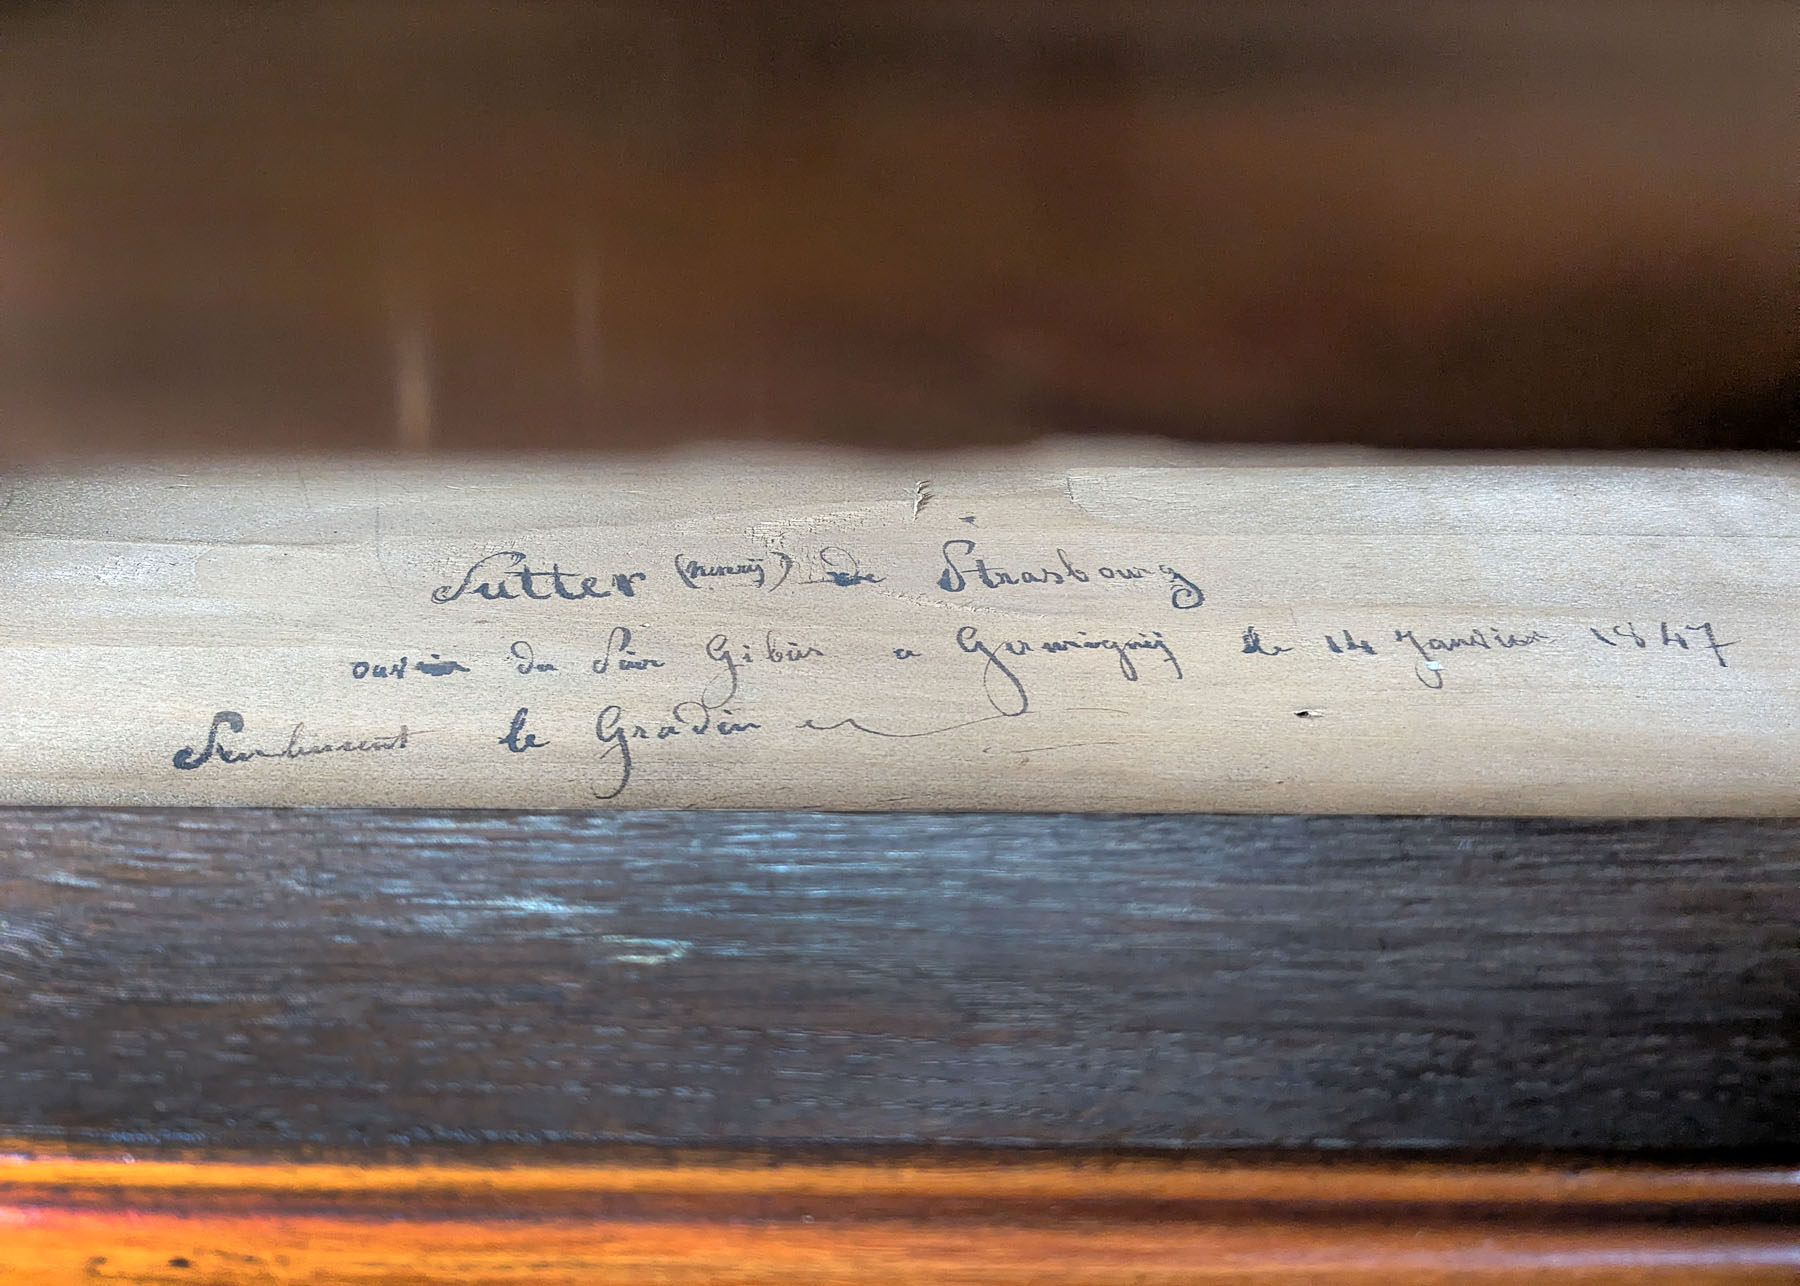 Sutter (henrÿ) de Strasbourg
ouvrier du Sieur Gibus a Germignÿ le 14 Janvier 1847
Seulement le Gradin